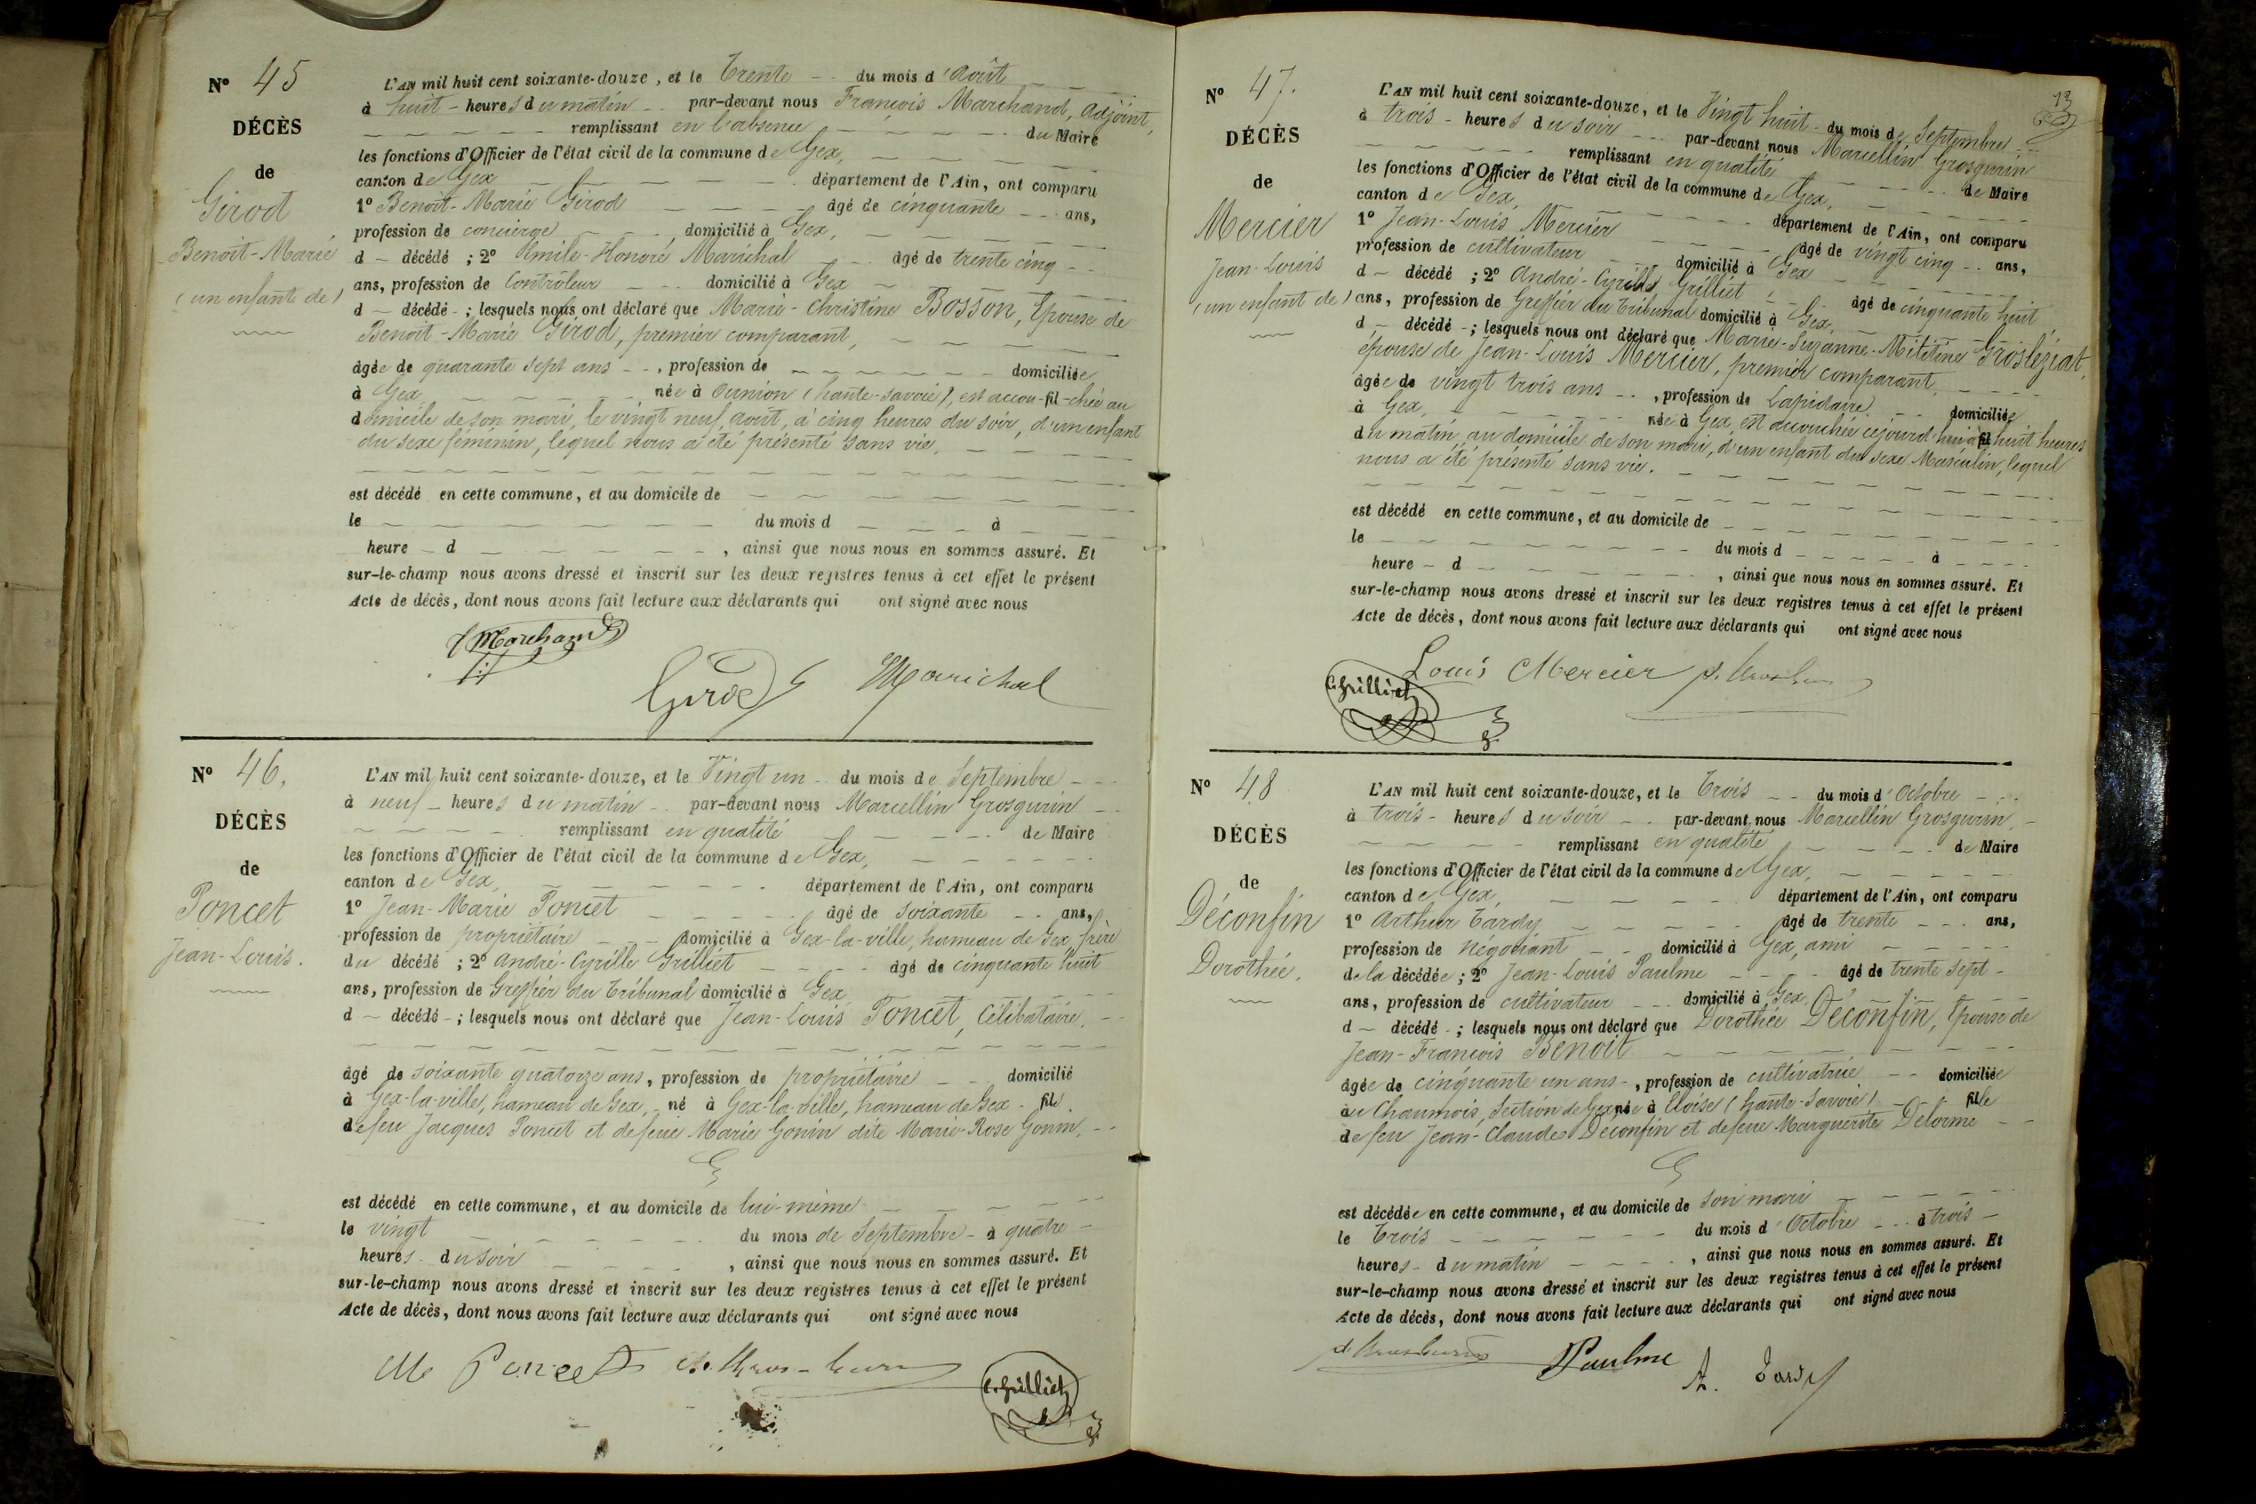 N° 45
DÉCÈS
de
Girod
Benoit-Marie
(un enfant de)
L'AN mil huit cent soixante-douze, et le Trente du mois d'Août
à huit heures du matin par-devant nous François Marchand, adjoint,
remplissant en l'absence du Maire
les fonctions d'Officier de l'état civil de la commune de Gex,
canton de Gex département de l'Ain, ont comparu
1° Benoit-Marie Girod âgé de cinquante ans,
profession de concierge, domicilié à Gex,
d décédé ; 2° Emile-Honoré Maréchal âgé de trente cinq
ans, profession de Contrôleur domicilié à Gex
d décédé ; lesquels nous ont déclaré que Marie-Christine Bosson, Epouse de
Benoit-Marie Girod, premier comparant,
âgée de quarante sept ans, profession de domiciliée
à Gex, née à Onnion (haute-savoie), est accou-fil-chée au
domicile de son mari, le vingt neuf août, à cinq heures du soir, d'un enfant
du sexe féminin, lequel nous a été présenté sans vie.
est décédé en cette commune, et au domicile de
le du mois d à
heure d , ainsi que nous nous en sommes assuré. Et
sur-le-champ nous avons dressé et inscrit sur les deux registres tenus à cet effet le présent
Acte de décès, dont nous avons fait lecture aux déclarants qui ont signé avec nous
f Marchand
Girod Marichal
N° 46.
DÉCÈS
de
Poncet
Jean-Louis.
L'AN mil huit cent soixante-douze, et le Vingt un du mois de Septembre
à neuf heures du matin par-devant nous Marcellin Grosgurin
remplissant en qualité de Maire
les fonctions d'Officier de l'état civil de la commune de Gex,
canton de Gex, département de l'Ain, ont comparu
1° Jean-Marie Poncet âgé de soixante ans,
profession de propriétaire domicilié à Gex-la-ville, hameau de Gex, frère
du décédé ; 2° André-Cyrille Grilliet âgé de cinquante huit
ans, profession de Greffier du Tribunal domicilié à Gex
d décédé ; lesquels nous ont déclaré que Jean-Louis Poncet, Célibataire,
âgé de soixante quatorze ans, profession de propriétaire domicilié
à Gex-la-ville, hameau de Gex, né à Gex-la-ville, hameau de Gex fils
de feu Jacques Poncet et de feue Marie Gonin dite Marie-Rose Gonin.
est décédé en cette commune, et au domicile de lui-même
le vingt du mois de Septembre à quatre
heures du soir , ainsi que nous nous en sommes assuré. Et
sur-le-champ nous avons dressé et inscrit sur les deux registres tenus à cet effet le présent
Acte de décès, dont nous avons fait lecture aux déclarants qui ont signé avec nous
Poncet
C. Grilliet
13
N° 47.
DÉCÈS
de
Mercier
Jean-Louis
(un enfant de)
L'AN mil huit cent soixante-douze, et le Vingt huit du mois de Septembre
à trois heures du soir par-devant nous Marcellin Grosgurin
remplissant en qualité de Maire
les fonctions d'Officier de l'état civil de la commune de Gex,
canton de Gex, département de l'Ain, ont comparu
1° Jean-Louis Mercier âgé de vingt cinq ans,
profession de cultivateur domicilié à Gex
d décédé ; 2° André-Cyrille Grilliet âgé de cinquante huit
ans, profession de Greffier du Tribunal domicilié à Gex,
d décédé ; lesquels nous ont déclaré que Marie-Suzanne-Mélitine Grosléziat,
épouse de Jean-Louis Mercier, premier comparant,
âgée de vingt trois ans, profession de Lapidaire domiciliée
à Gex, née à Gex, est accouchée cejourd'hui à fil huit heures
du matin, au domicile de son mari, d'un enfant du sexe Masculin, lequel
nous a été présenté sans vie.
est décédé en cette commune, et au domicile de
le du mois d à
heure d , ainsi que nous nous en sommes assuré. Et
sur-le-champ nous avons dressé et inscrit sur les deux registres tenus à cet effet le présent
Acte de décès, dont nous avons fait lecture aux déclarants qui ont signé avec nous
Louis Mercier
C. Grilliet
N° 48
DÉCÈS
de
Déconfin
Dorothée.
L'AN mil huit cent soixante-douze, et le Trois du mois d'Octobre
à trois heures du soir par-devant nous Marcellin Grosgurin,
remplissant en qualité de Maire
les fonctions d'Officier de l'état civil de la commune de Gex,
canton de Gex, département de l'Ain, ont comparu
1° Arthur Tardy âgé de trente ans,
profession de Négociant domicilié à Gex, ami
de la décédée ; 2° Jean-Louis Paulme âgé de trente sept
ans, profession de cultivateur domicilié à Gex
d décédé ; lesquels nous ont déclaré que Dorothée Déconfin, Epouse de
Jean-François Benoit
âgée de cinquante un ans, profession de cultivatrice domiciliée
au Chaumois, Section de Gex née à Cloise (haute-Savoie) fille
de feu Jean-Claude Déconfin et de feue Marguerite Delorme
est décédée en cette commune, et au domicile de son mari
le Trois du mois d'Octobre à trois
heures du matin , ainsi que nous nous en sommes assuré. Et
sur-le-champ nous avons dressé et inscrit sur les deux registres tenus à cet effet le présent
Acte de décès, dont nous avons fait lecture aux déclarants qui ont signé avec nous
Paulme A. Tardy